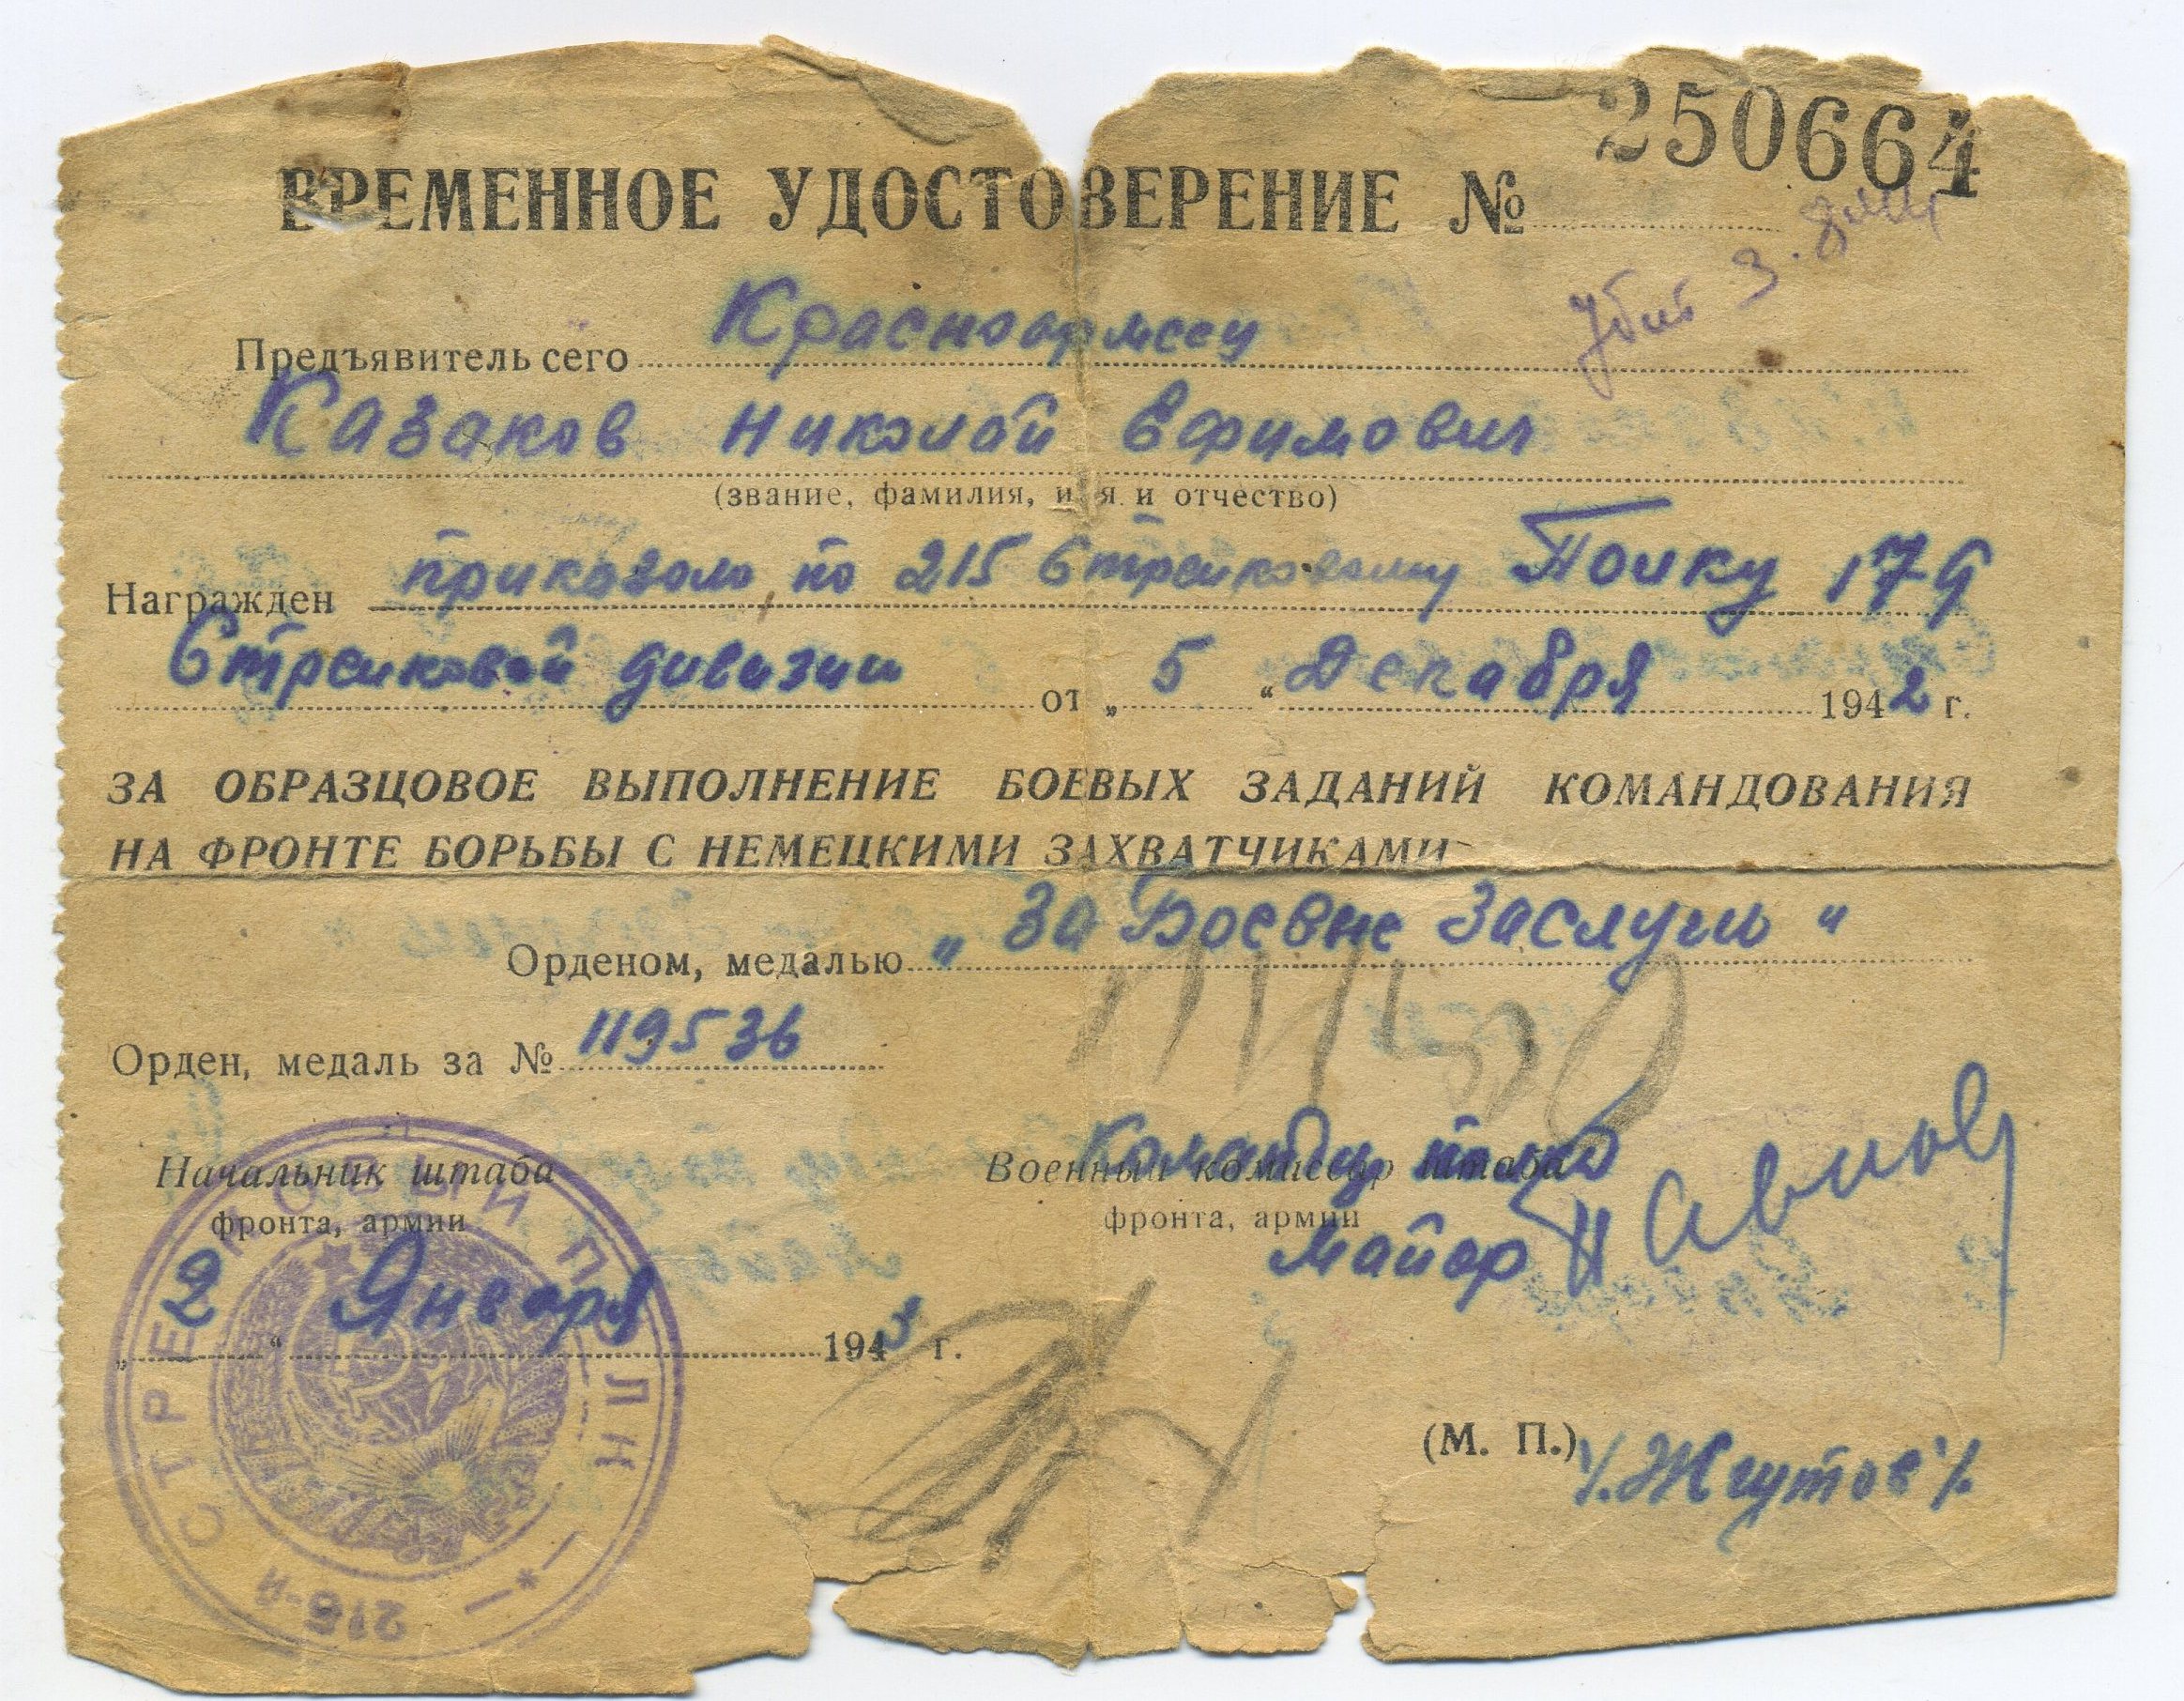 250664
ВРЕМЕННОЕ УДОСТОВЕРЕНИЕ №
Убит 3.
Предъявитель сего Красноармеец
Казаков Николай Ефимович
(звание, фамилия, имя и отчество)
Награжден приказом по 215 Стрелковому Полку 179
Стрелковой дивизии от „ 5 “ Декабря 1942 г.
ЗА ОБРАЗЦОВОЕ ВЫПОЛНЕНИЕ БОЕВЫХ ЗАДАНИЙ КОМАНДОВАНИЯ
НА ФРОНТЕ БОРЬБЫ С НЕМЕЦКИМИ ЗАХВАТЧИКАМИ
Орденом, медалью „За Боевые Заслуги"
Орден, медаль за № 119536
Начальник штаба
фронта, армии
Командир полка
Военный комиссар штаба
фронта, армии
майор
„ 2 “ Января 1943 г.
(М. П.) /.Жгутов/.
215-й СТРЕЛКОВЫЙ ПОЛК